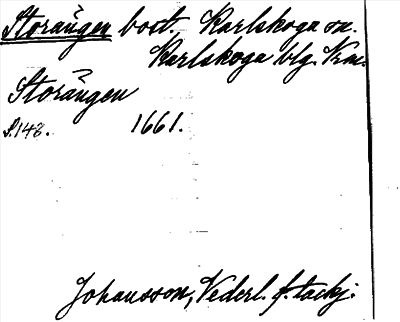 Storängen bost. Karlskoga sn.
Karlskoga blg. Vrm.
Storängen
S. 148. 1661.
Johansson, Vederl. f. tackj.